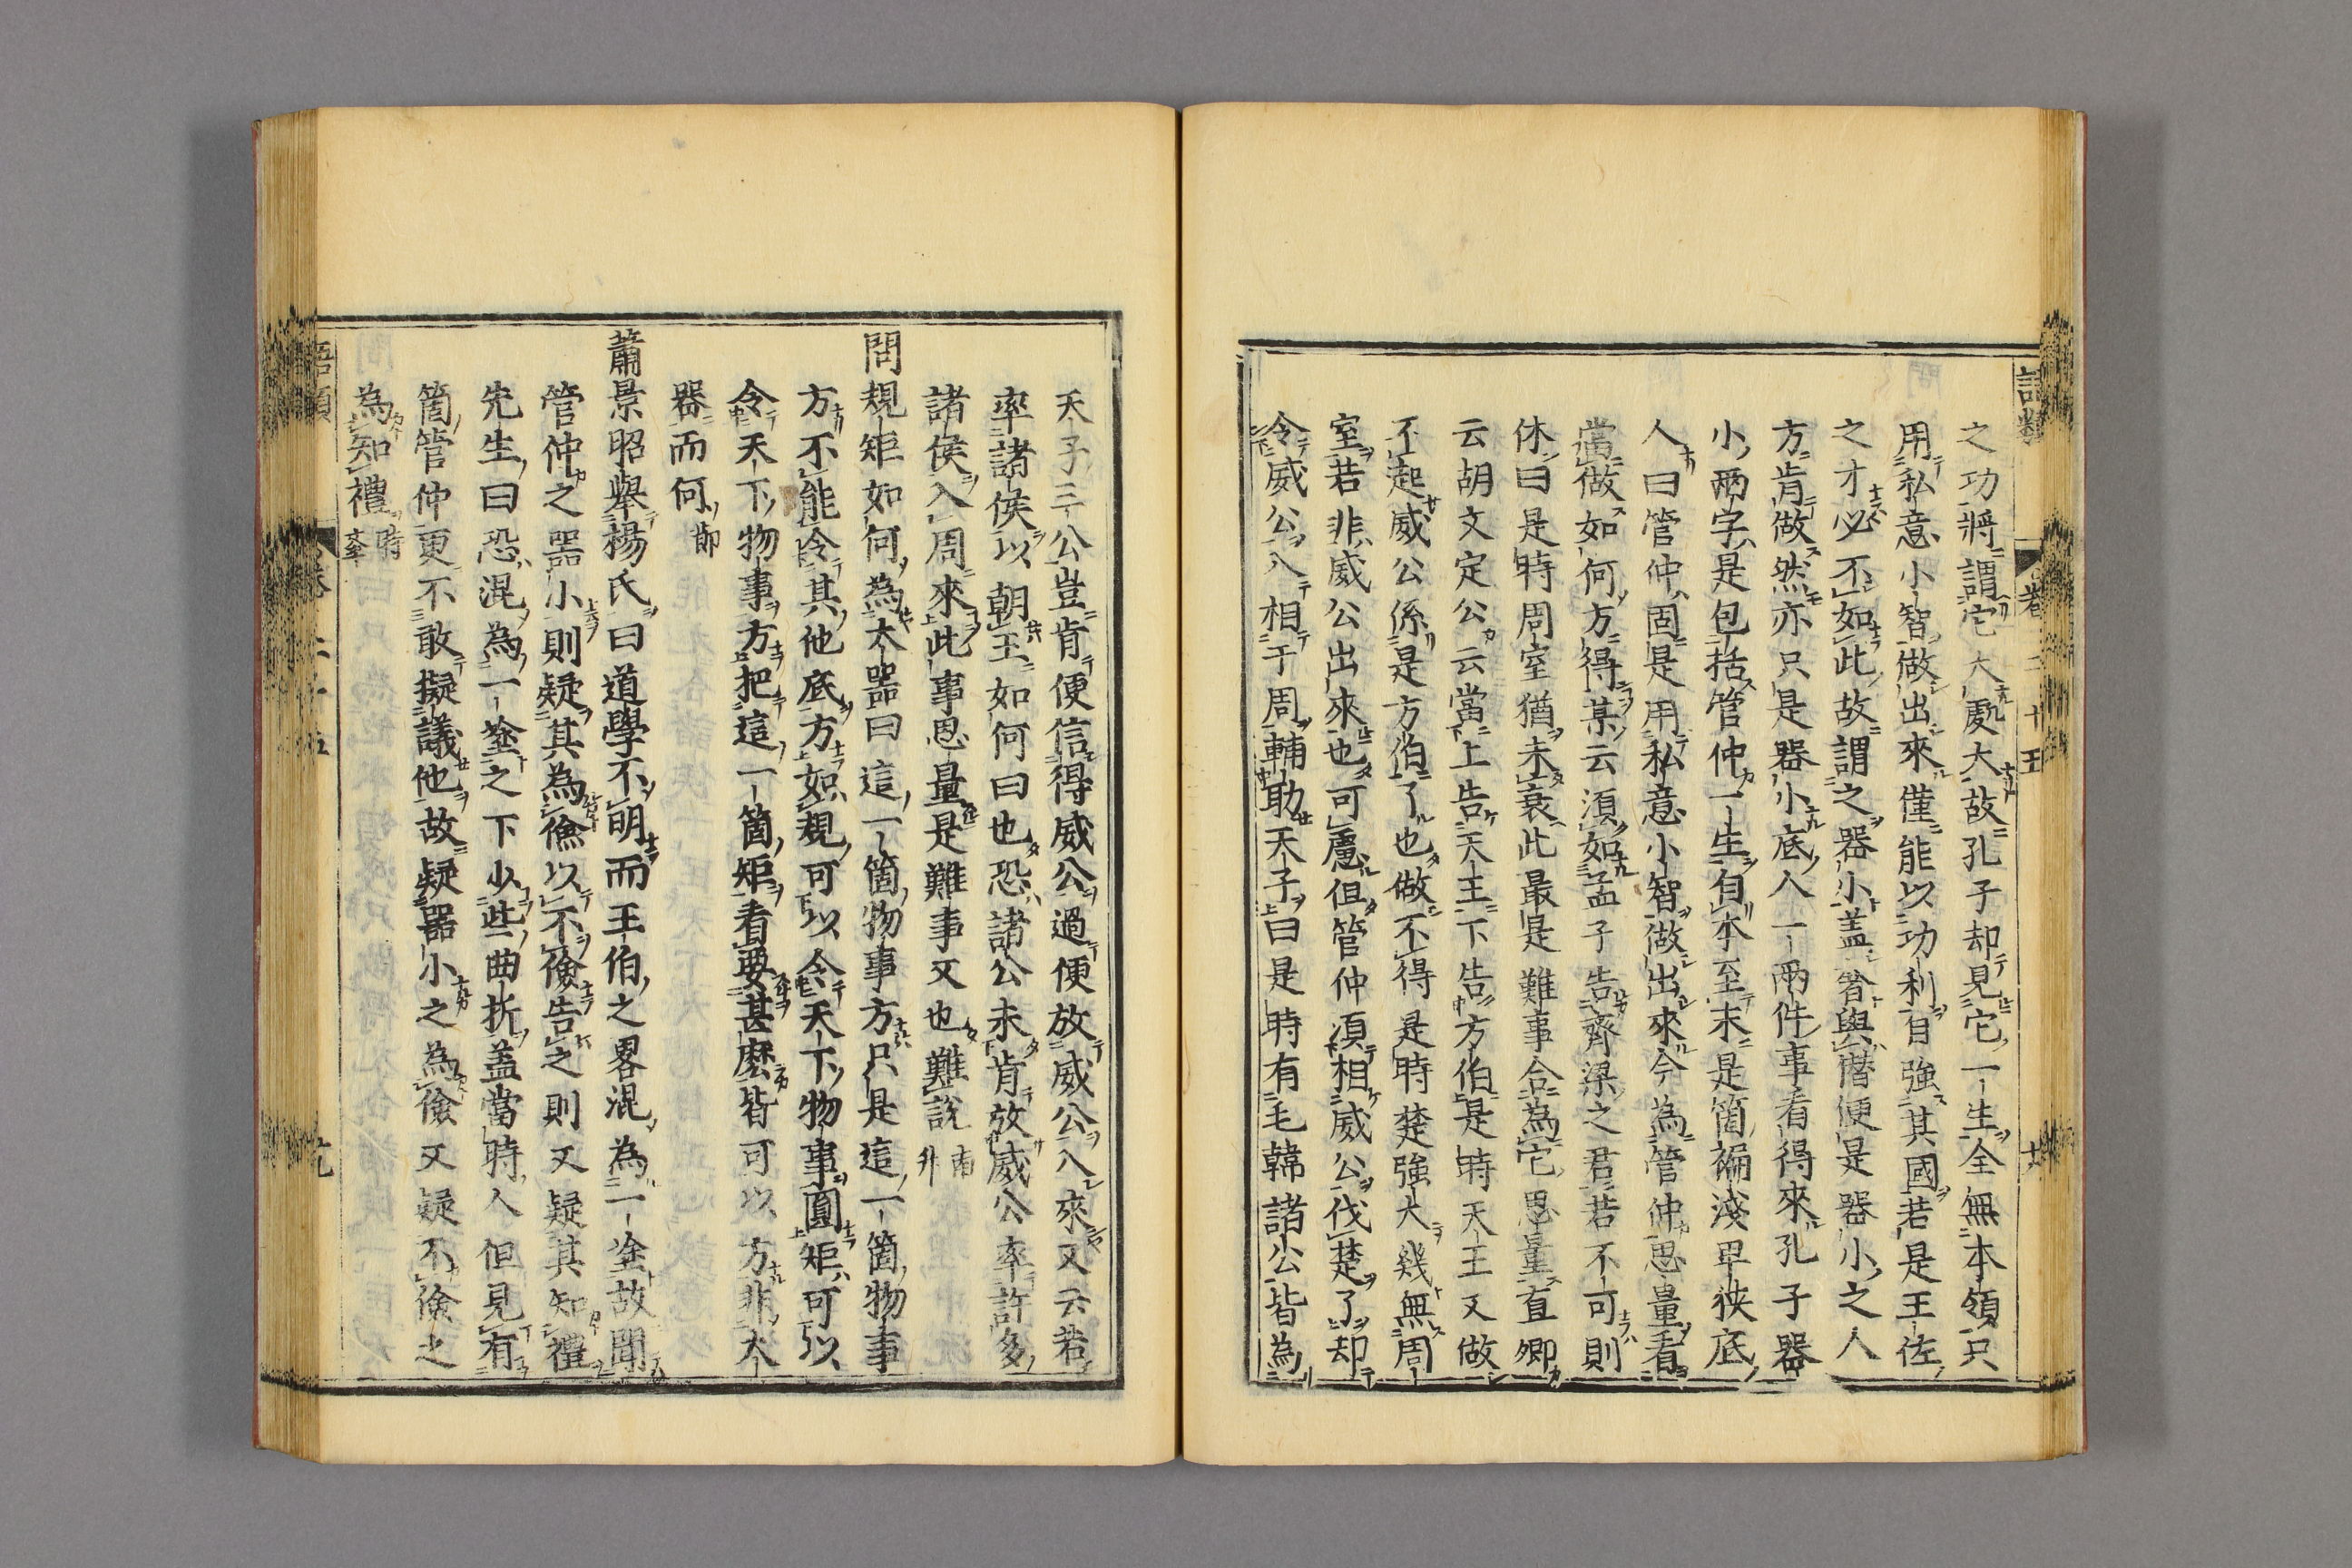 之功將謂它大處大故孔子却見它一生全無本領只
用私意小智做出來僅能以功利自強其國若是王佐
之才必不如此故謂之器小盖奢與僭便是器小之人
方肯做然亦只是器小底人一兩件事看得來孔子器
小兩字是包括管仲一生自本至末是箇褊淺卑狹底
人曰管仲固是用私意小智做出來今為管仲思量看
當做如何方得某云須如孟子告齊梁之君若不可則
休曰是時周室猶未衰此最是難事合為它思量直卿
云胡文定公云當上告天王下告方伯是時天王又做
不起威公係是方伯了也做不得是時楚強大幾無周
室若非威公出來也可慮但管仲須相威公伐楚了却
令威公入相于周輔助天子曰是時有毛韓諸公皆為
天子三公豈肯便信得威公過便放威公入來又云若
率諸侯以朝王如何曰也恐諸公未肯放威公率許多
諸侯入周來此事思量是難事又也難說 南升
問規矩如何為大器曰這一箇物事方只是這一箇物事
方不能令其他底方如規可以令天下物事圓矩可以
令天下物事方把這一箇矩看要甚麽皆可以方非大
器而何 節
蕭景昭舉楊氏曰道學不明而王伯之畧混為一塗故聞
管仲之器小則疑其為儉以不儉告之則又疑其知禮
先生曰恐混為一塗之下少些曲折盖當時人但見有
箇管仲更不敢擬議他故疑器小之為儉又疑不儉之
為知禮 時舉